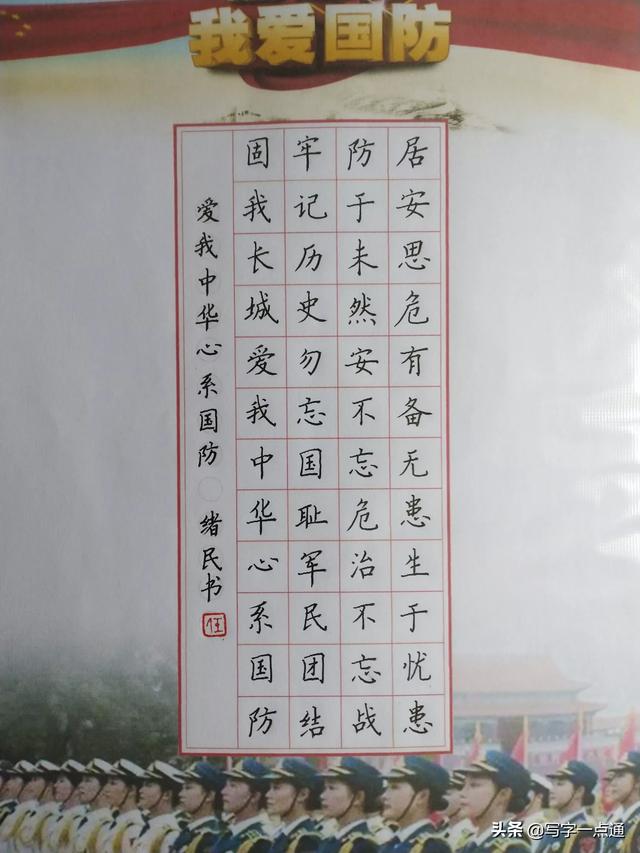 我爱国防
居安思危有备无患生于忧患
防于未然安不忘危治不忘战
牢记历史勿忘国耻军民团结
固我长城爱我中华心系国防
爱我中华心系国防 绪民书
任
头条 @写字一点通